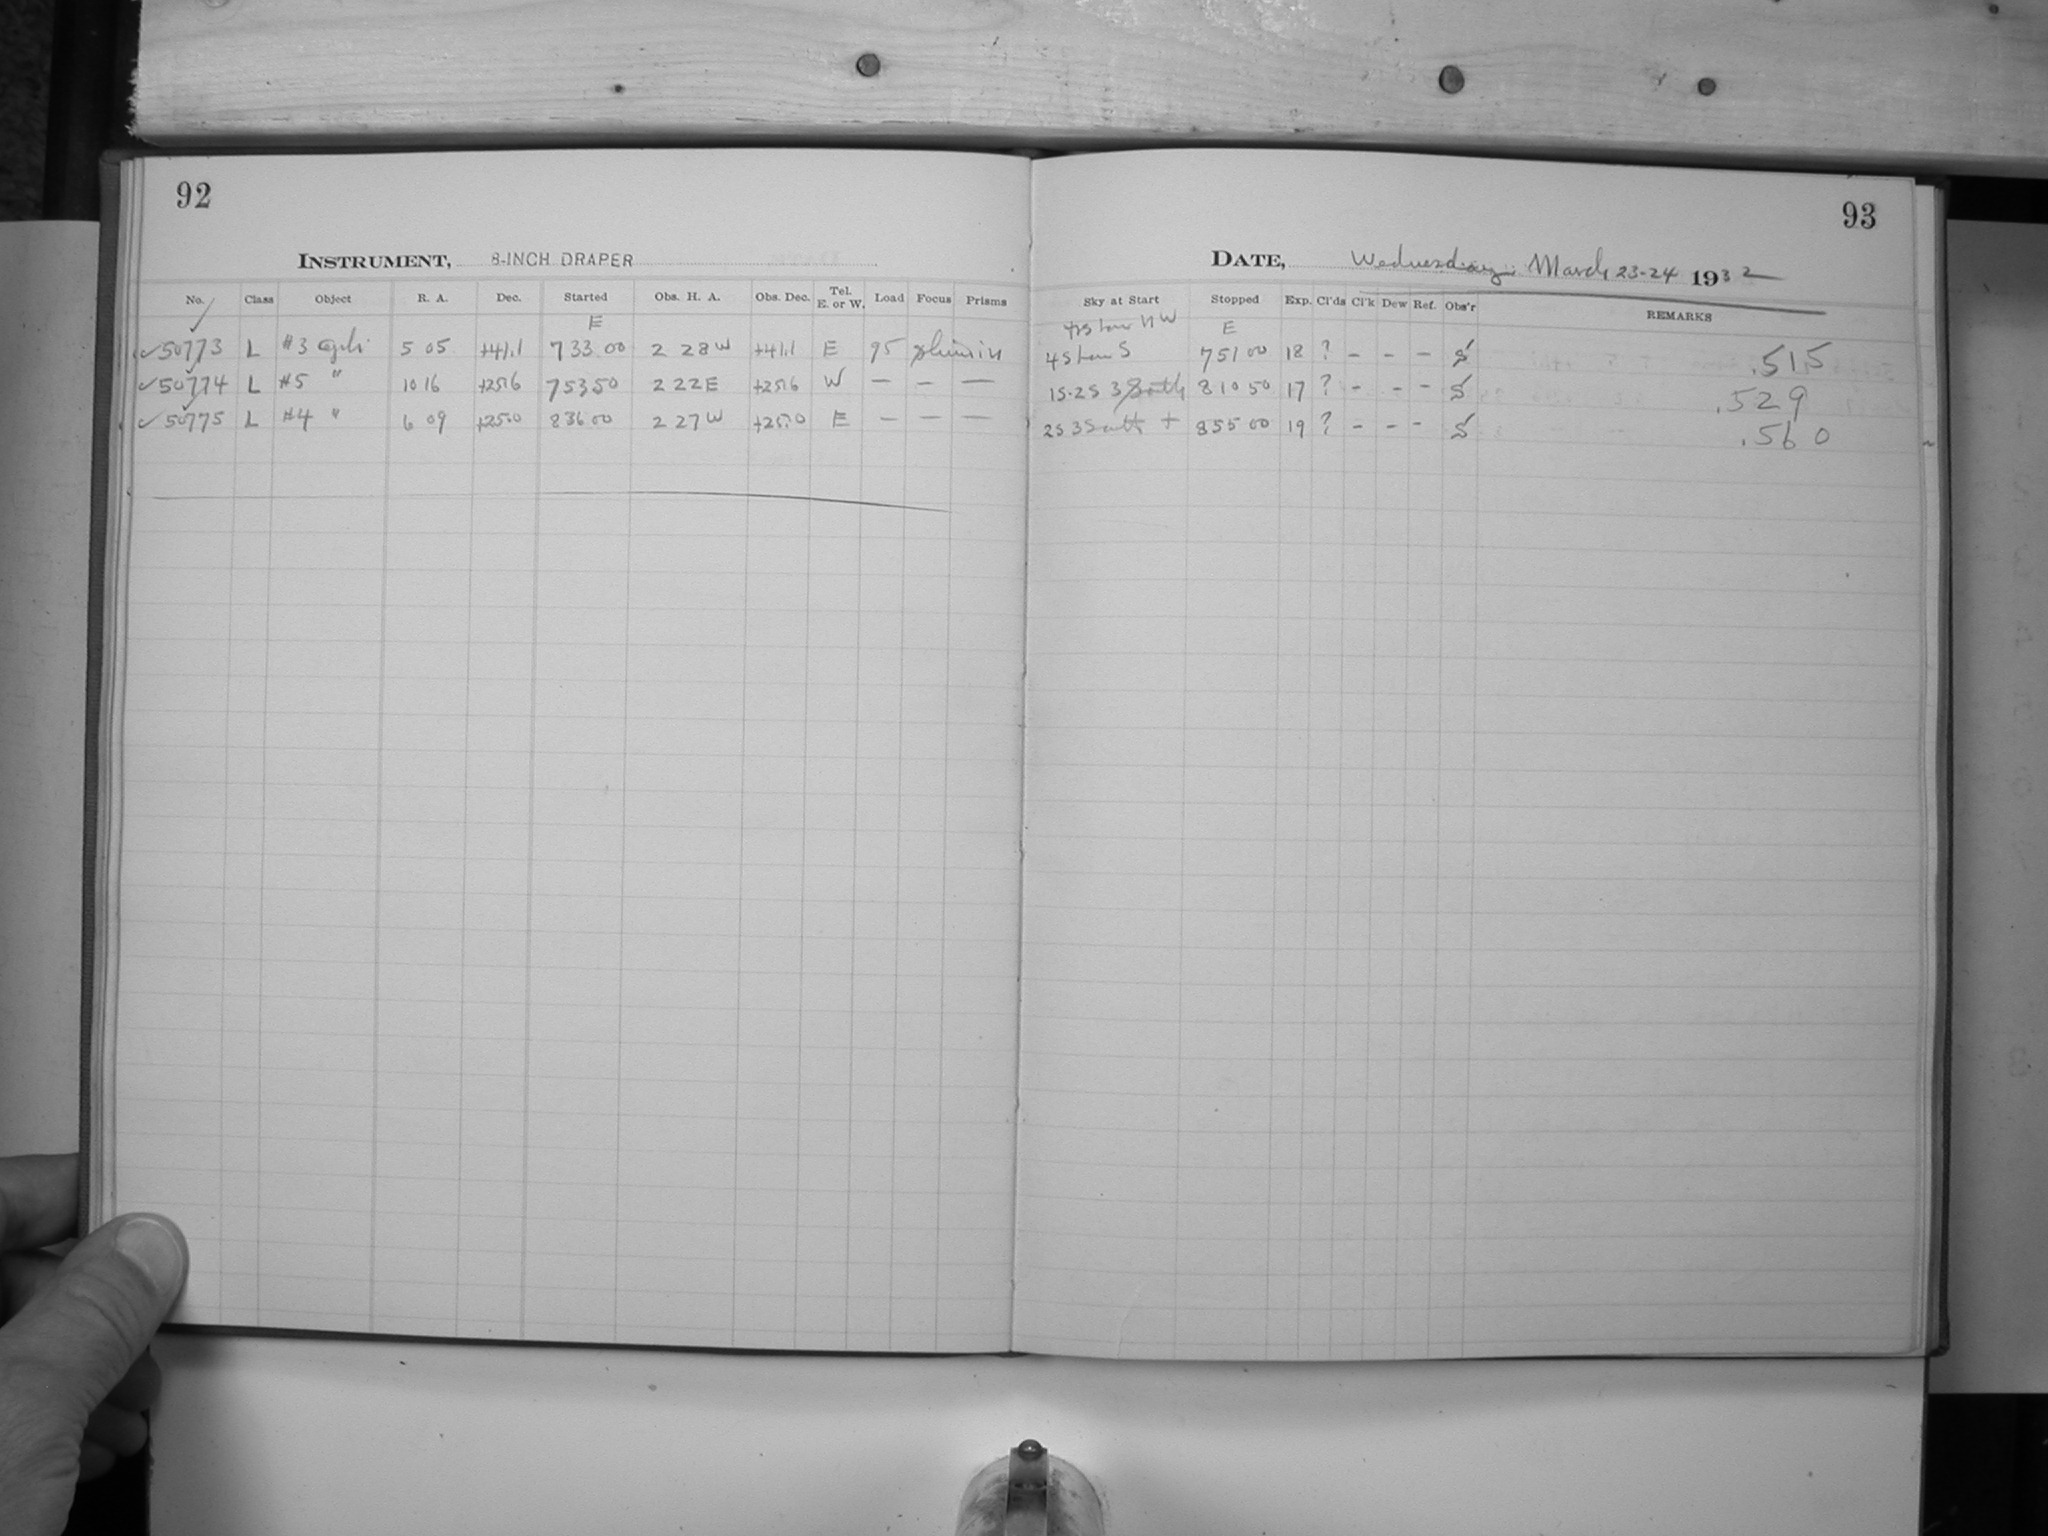 92
INSTRUMENT, 8-INCH DRAPER
No. Class Object R. A. Dec. Started Obs. H. A. Obs. Dec. Tel. E. or W. Load Focus Prisms
E
✓50773 L #3 5 05 +41.1 7 33 00 2 28 W +41.1 E 95
✓50774 L #5 " 10 16 +25.6 7 53 50 2 22 E +25.6 W — — —
✓50775 L #4 " 6 09 +25.0 8 36 00 2 27 W +25.0 E — — —
93
DATE, Wednesday March 23-24 1932
Sky at Start Stopped Exp. Cl'ds Cl'k Dew Ref. Obs'r REMARKS
N W E
4 S S 7 51 00 18 ? – – – S .515
1S-2S 3 South 8 10 50 17 ? – – – S .529
2S 3 South + 8 55 00 19 ? – – – S .560